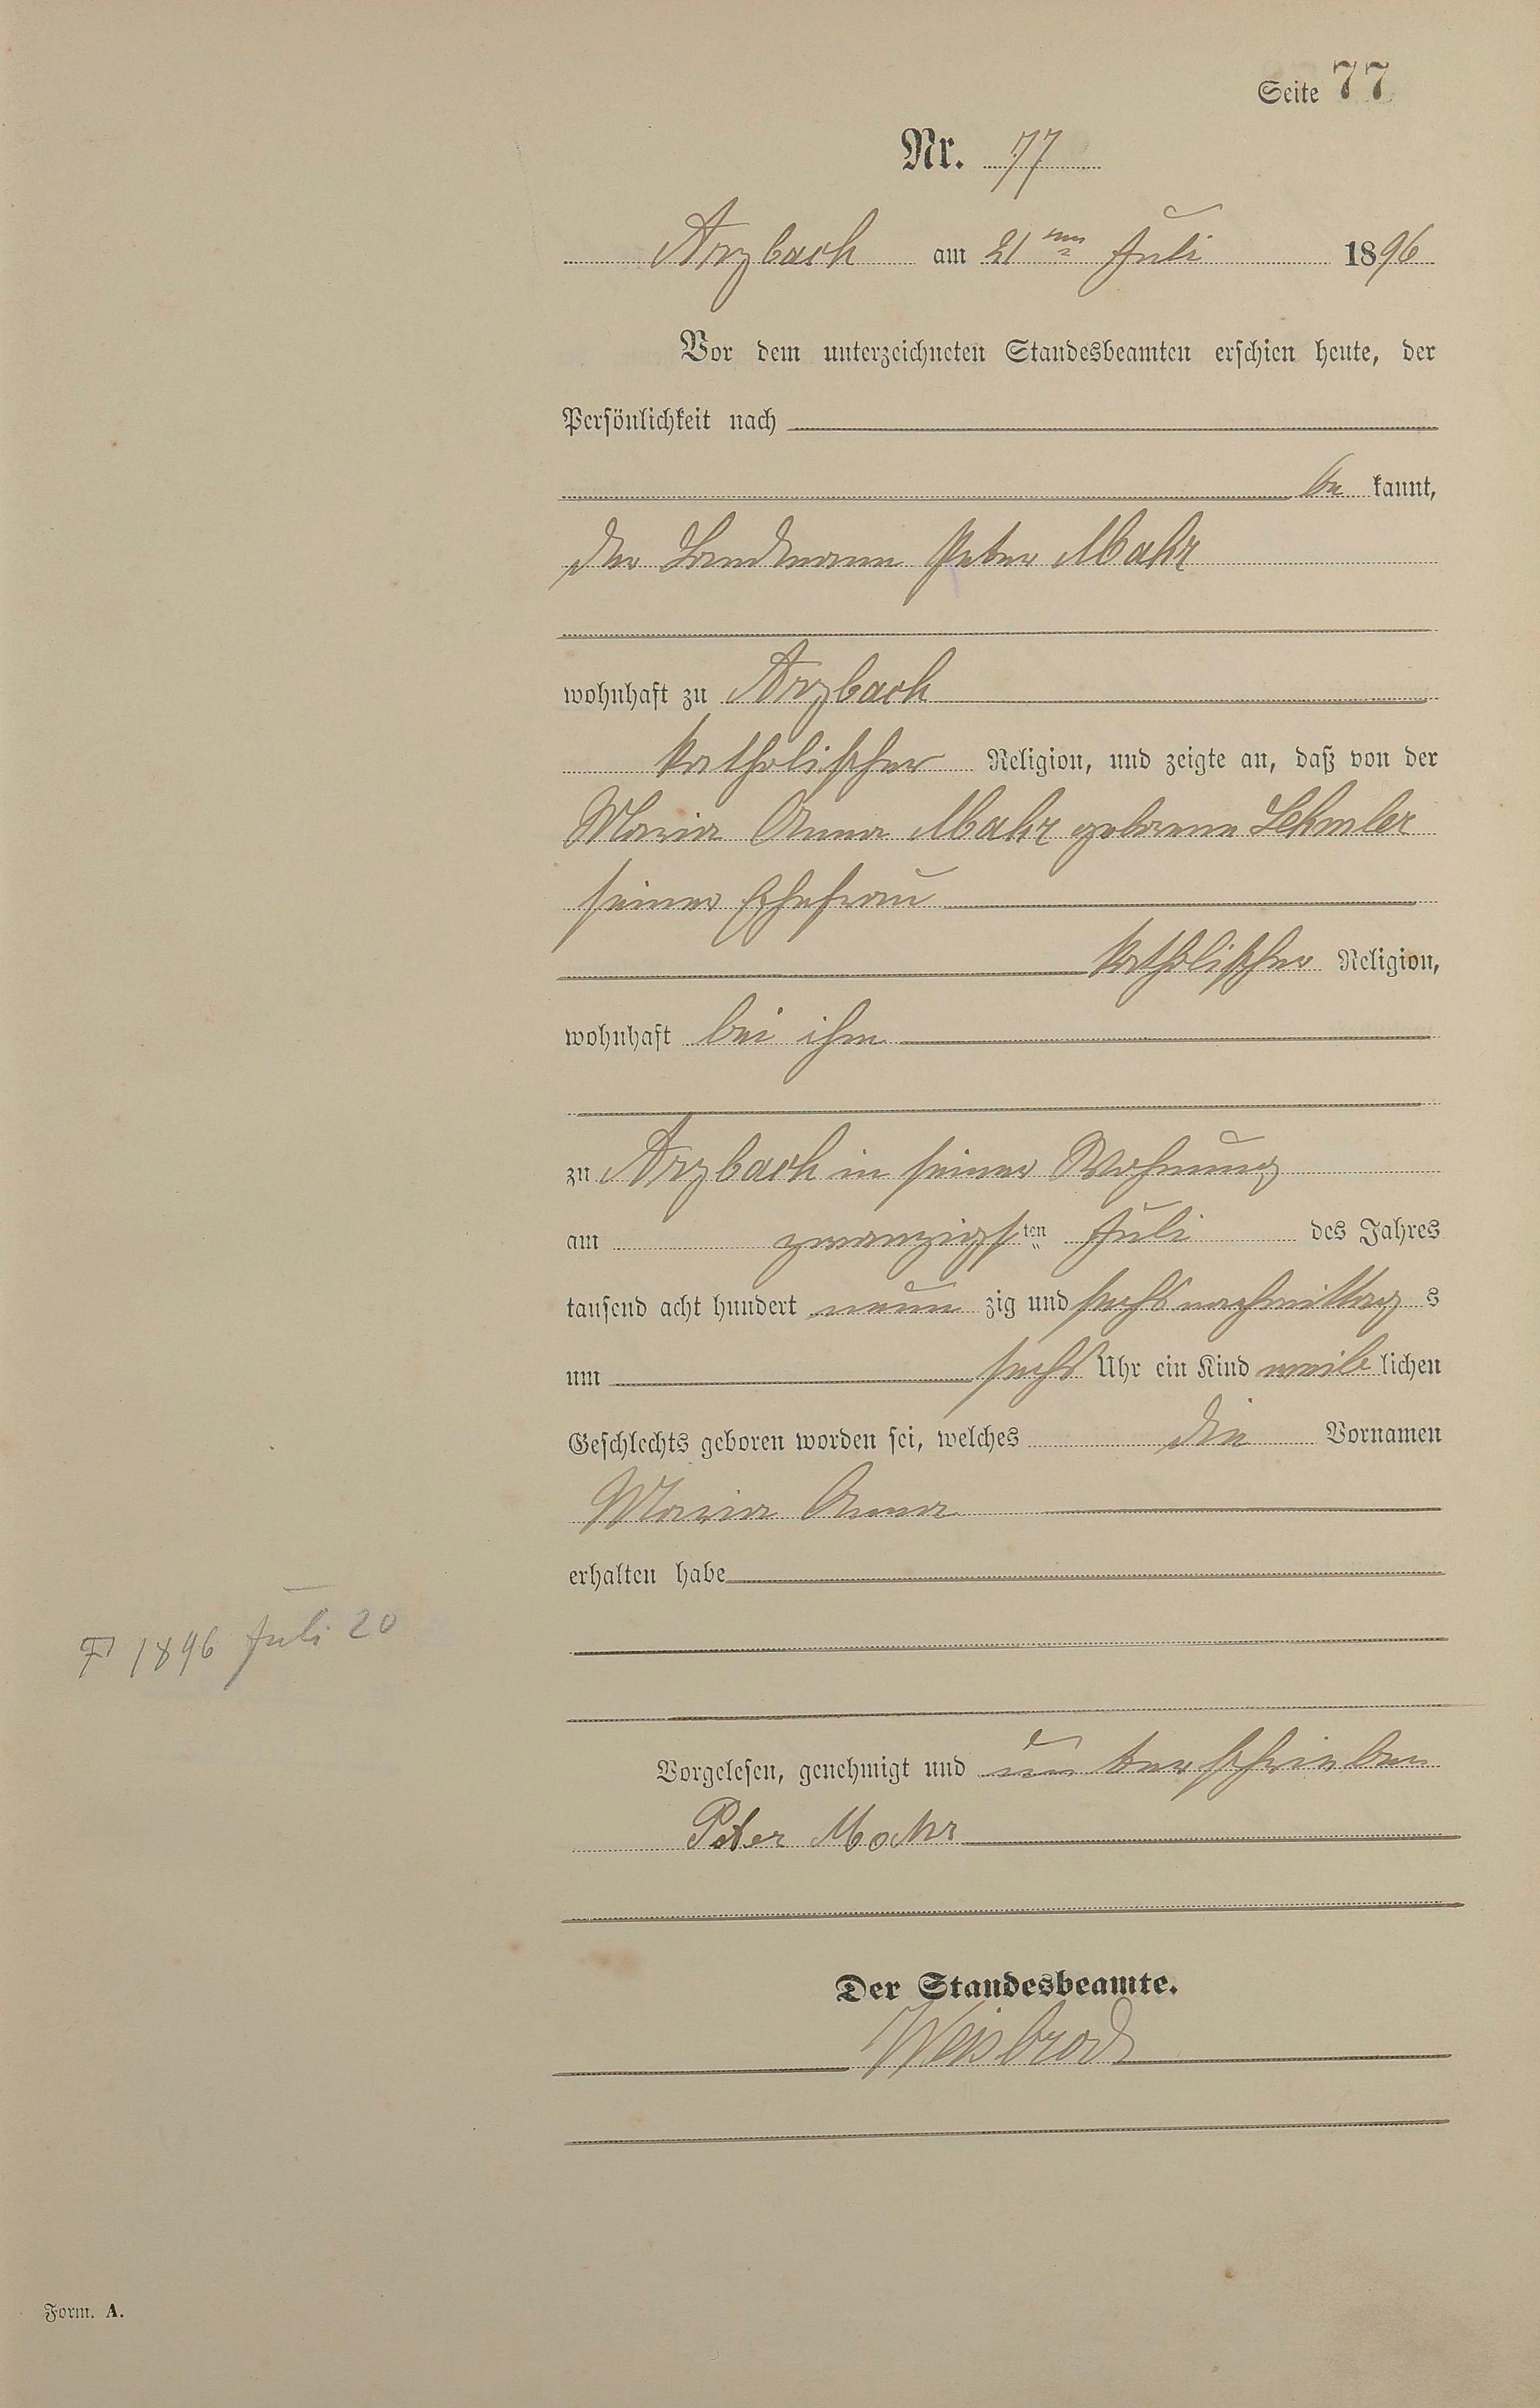 Seite 77
Nr. 77
Arzbach am 21ten Juli 1896
Vor dem unterzeichneten Standesbeamten erschien heute, der
Persönlichkeit nach
be kannt,
der Landmann Peter Mahr
wohnhaft zu Arzbach
katholischer Religion, und zeigte an, daß von der
Maria Anna Mahr geborene Lehmler
seiner Ehefrau
katholischer Religion,
wohnhaft bei ihm
zu Arzbach in seiner Wohnung
am zwanzigsten Juli des Jahres
tausend acht hundert neun zig und sechs nachmittag s
um sechs Uhr ein Kind weib lichen
Geschlechts geboren worden sei, welches die Vornamen
Maria Anna
erhalten habe
1896 Juli 20
Vorgelesen, genehmigt und unterschrieben
Peter Mahr
Der Standesbeamte.
Weisbrod
Form. A.